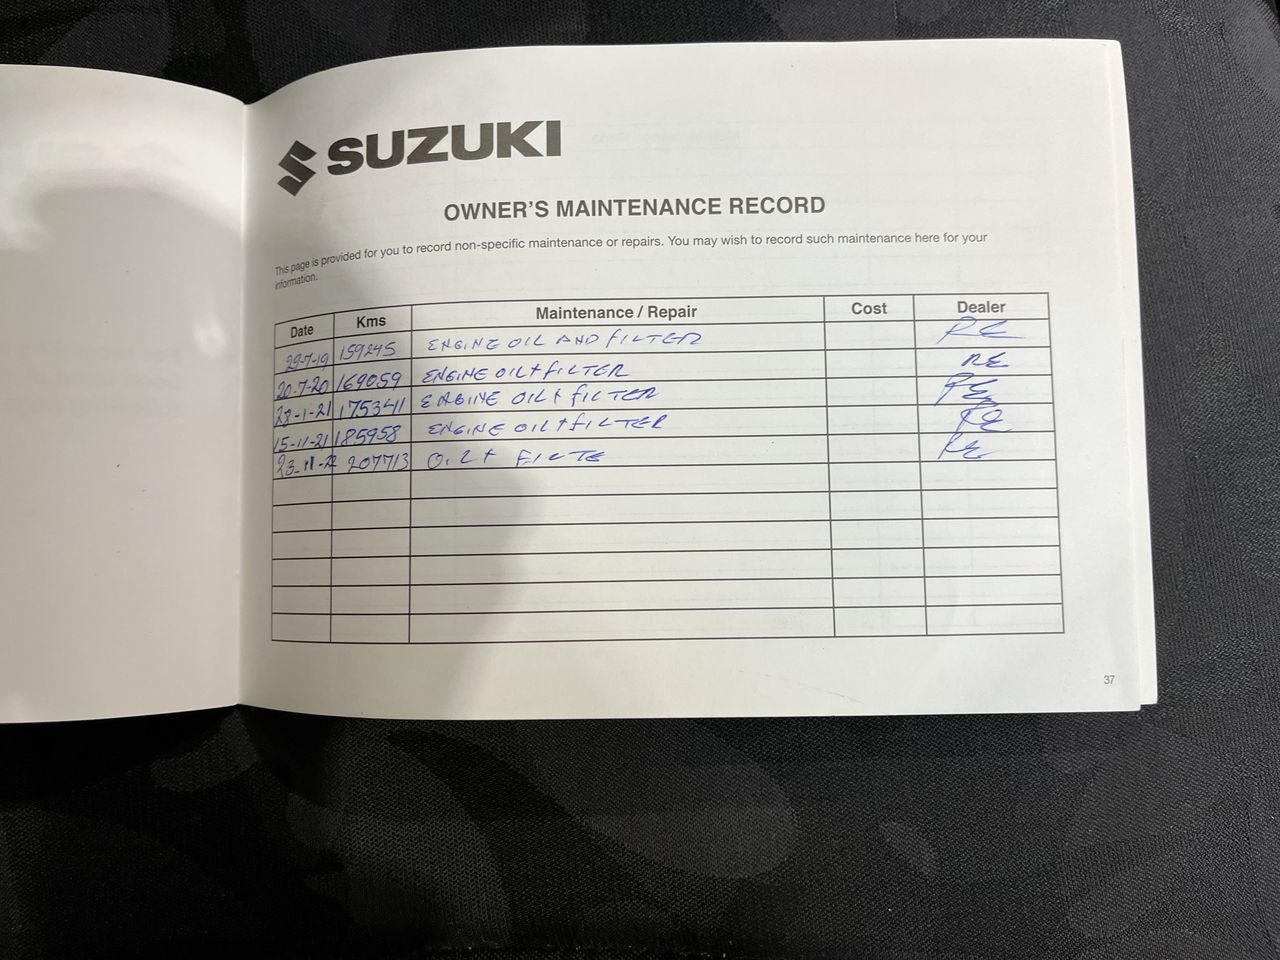 SUZUKI
OWNER'S MAINTENANCE RECORD
This page is provided for you to record non-specific maintenance or repairs. You may wish to record such maintenance here for your
information.
Date Kms Maintenance / Repair Cost Dealer
29-7-19 159245 ENGINE OIL AND FILTER RE
20-7-20 169059 ENGINE OIL+FILTER RE
28-1-21 175341 ENGINE OIL+FILTER RE
15-11-21 185958 ENGINE OIL+FILTER RE
23-11-22 207713 OIL+ FILTE RE
37